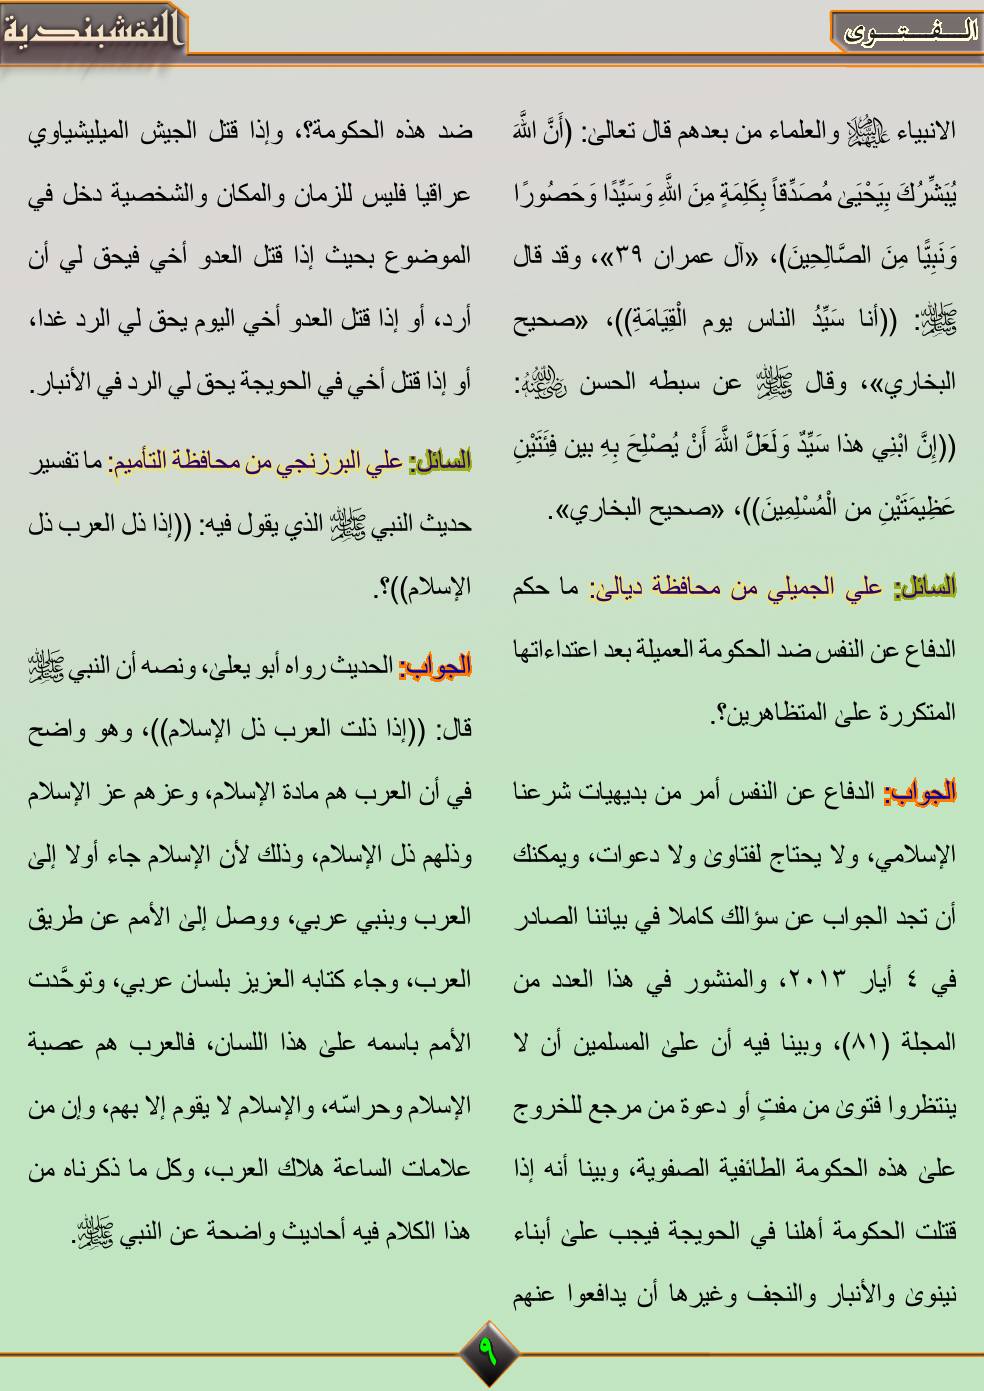 الفتوى
النقشبندية
الانبياء عليهم السلام والعلماء من بعدهم قال تعالىٰ: (أَنَّ اللَّهَ
يُبَشِّرُكَ بِيَحْيَىٰ مُصَدِّقاً بِكَلِمَةٍ مِنَ اللَّهِ وَسَيِّدًا وَحَصُورًا
وَنَبِيًّا مِنَ الصَّالِحِينَ)، «آل عمران ٣٩»، وقد قال
ﷺ: ((أنا سَيِّدُ الناس يوم الْقِيَامَةِ))، «صحيح
البخاري»، وقال ﷺ عن سبطه الحسن رضي الله عنه:
((إِنَّ ابْنِي هذا سَيِّدٌ وَلَعَلَّ اللَّهَ أَنْ يُصْلِحَ بِهِ بين فِئَتَيْنِ
عَظِيمَتَيْنِ من الْمُسْلِمِينَ))، «صحيح البخاري».
السائل: علي الجميلي من محافظة ديالىٰ: ما حكم
الدفاع عن النفس ضد الحكومة العميلة بعد اعتداءاتها
المتكررة علىٰ المتظاهرين؟.
الجواب: الدفاع عن النفس أمر من بديهيات شرعنا
الإسلامي، ولا يحتاج لفتاوىٰ ولا دعوات، ويمكنك
أن تجد الجواب عن سؤالك كاملا في بياننا الصادر
في ٤ أيار ٢٠١٣، والمنشور في هذا العدد من
المجلة (٨١)، وبينا فيه أن علىٰ المسلمين أن لا
ينتظروا فتوىٰ من مفتٍ أو دعوة من مرجع للخروج
علىٰ هذه الحكومة الطائفية الصفوية، وبينا أنه إذا
قتلت الحكومة أهلنا في الحويجة فيجب علىٰ أبناء
نينوىٰ والأنبار والنجف وغيرها أن يدافعوا عنهم
ضد هذه الحكومة؟، وإذا قتل الجيش الميليشياوي
عراقيا فليس للزمان والمكان والشخصية دخل في
الموضوع بحيث إذا قتل العدو أخي فيحق لي أن
أرد، أو إذا قتل العدو أخي اليوم يحق لي الرد غدا،
أو إذا قتل أخي في الحويجة يحق لي الرد في الأنبار.
السائل: علي البرزنجي من محافظة التأميم: ما تفسير
حديث النبي ﷺ الذي يقول فيه: ((إذا ذل العرب ذل
الإسلام))؟.
الجواب: الحديث رواه أبو يعلىٰ، ونصه أن النبي ﷺ
قال: ((إذا ذلت العرب ذل الإسلام))، وهو واضح
في أن العرب هم مادة الإسلام، وعزهم عز الإسلام
وذلهم ذل الإسلام، وذلك لأن الإسلام جاء أولا إلىٰ
العرب وبنبي عربي، ووصل إلىٰ الأمم عن طريق
العرب، وجاء كتابه العزيز بلسان عربي، وتوحَّدت
الأمم باسمه علىٰ هذا اللسان، فالعرب هم عصبة
الإسلام وحراسّه، والإسلام لا يقوم إلا بهم، وإن من
علامات الساعة هلاك العرب، وكل ما ذكرناه من
هذا الكلام فيه أحاديث واضحة عن النبي ﷺ.
٩